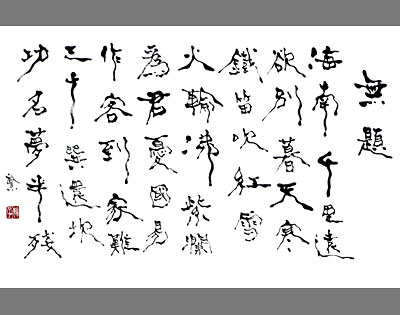 無題
海南千里遠
欲別暮天寒
鐵笛吹紅雪
火輪沸紫瀾
爲君憂國易
作客到家難
三十巽還坎
功名夢半殘